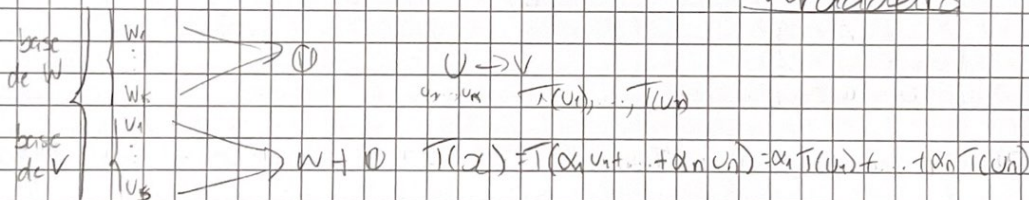 base de W
w₁
⋮
wₖ
0
U → V
u₁ ... uₙ T(u₁), ..., T(uₙ)
base de V
v₁
⋮
w + 0 T(x) = T(α₁u₁ + ... + αₙuₙ) = α₁T(u₁) + ... + αₙT(uₙ)